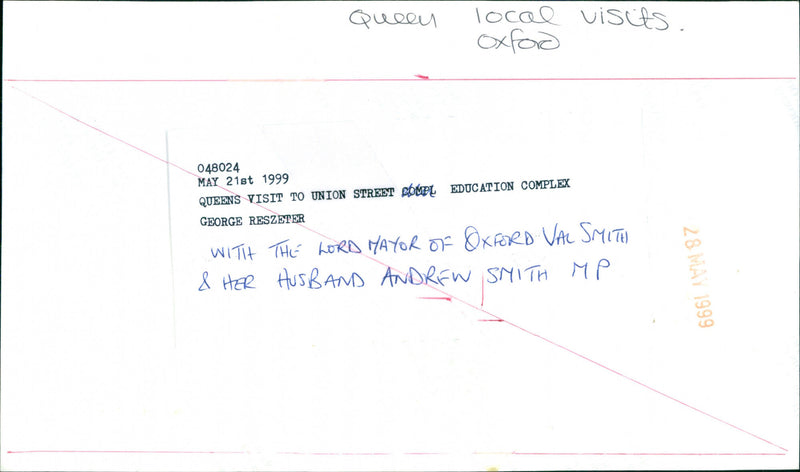 Queen local visits.
Oxford
048024
MAY 21st 1999
QUEENS VISIT TO UNION STREET COMPL EDUCATION COMPLEX
GEORGE RESZETER
WITH THE LORD MAYOR OF OXFORD VAL SMITH
& HER HUSBAND ANDREW SMITH MP
28 MAY 1999